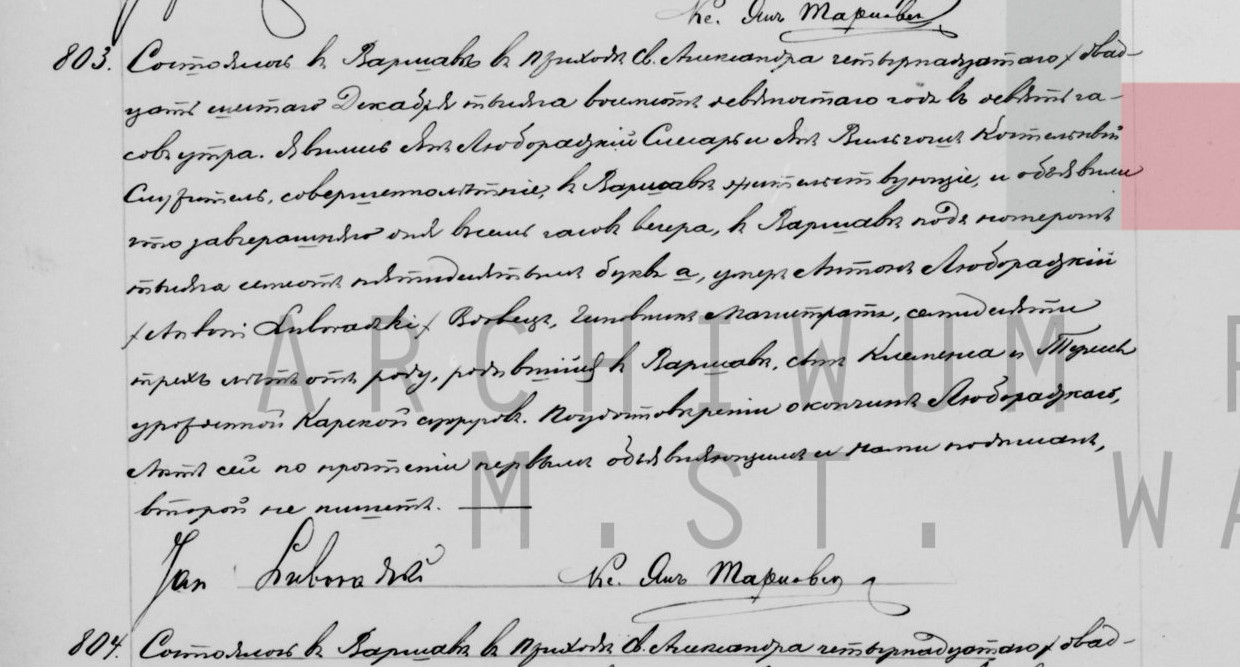 Кс. Янъ Тарновск
803. Состоялось въ Варшавѣ въ приходѣ Св. Александра четырнадцатаго /двад-
цать шестаго/ Декабря тысяча восемсотъ девяностаго года въ девять ча-
совъ утра. Явились Янъ Люборадзкій Слесарь и Янъ Костельный
Служитель, совершеннолѣтніе, въ Варшавѣ жительствующіе, и объявили
что завчерашняго дня въ семь часовъ вечера, въ Варшавѣ подъ номеромъ
тысяча семсотъ пятидесятымъ буквъ а, умеръ Антонъ Люборадзкій
/Antoni Luboradzki/ Вдовецъ, Чиновникъ Магистрата, семидесяти
трехъ лѣтъ отъ роду, родившійся въ Варшавѣ, сынъ Клеменса и Терессы
урожденной Карской супруговъ. По удостовѣреніи о кончинѣ Люборадзкаго,
Актъ сей по прочтеніи первымъ объявляющимъ и нами подписанъ,
второй не пишетъ.
Jan Luboradzki Кс. Янъ
804. Состоялось въ Варшавѣ въ приходѣ Св. Александра четырнадцатаго /двад-
ARCHIWUM P
M. ST. WA